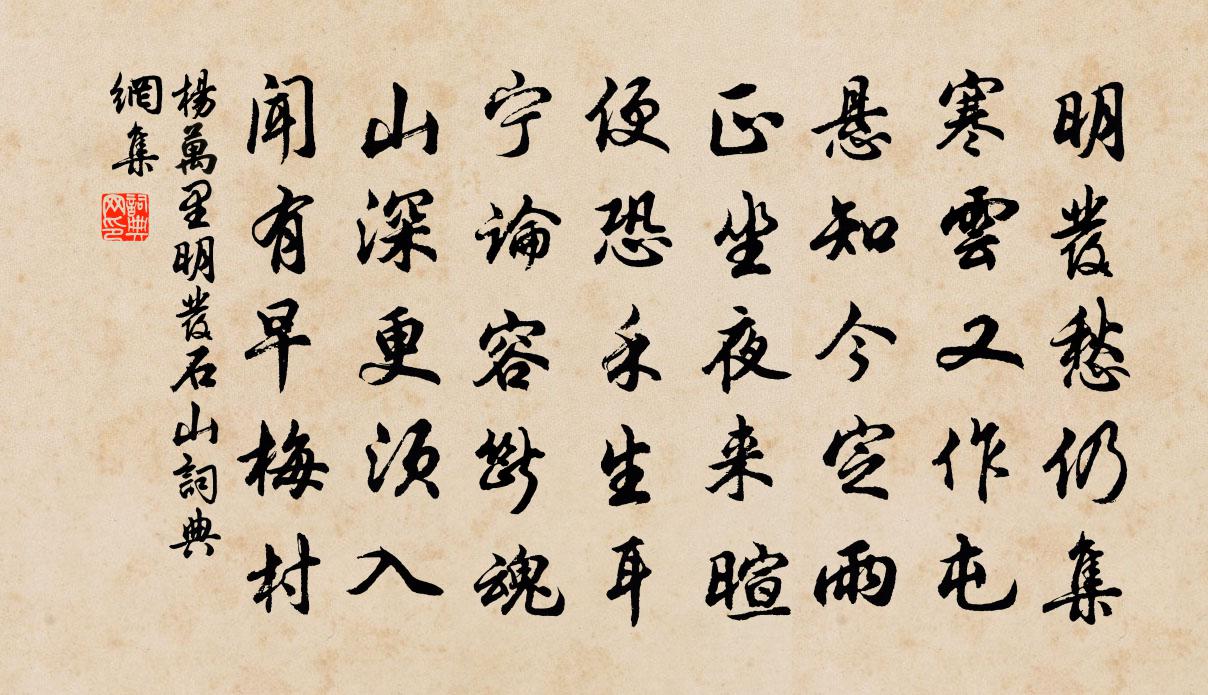 明發愁仍集
寒雲又作屯
悬知今定雨
正坐夜来暄
便恐禾生耳
宁論容断魂
山深更须入
聞有早梅村
楊萬里明發石山詞典
網集
詞典
网印